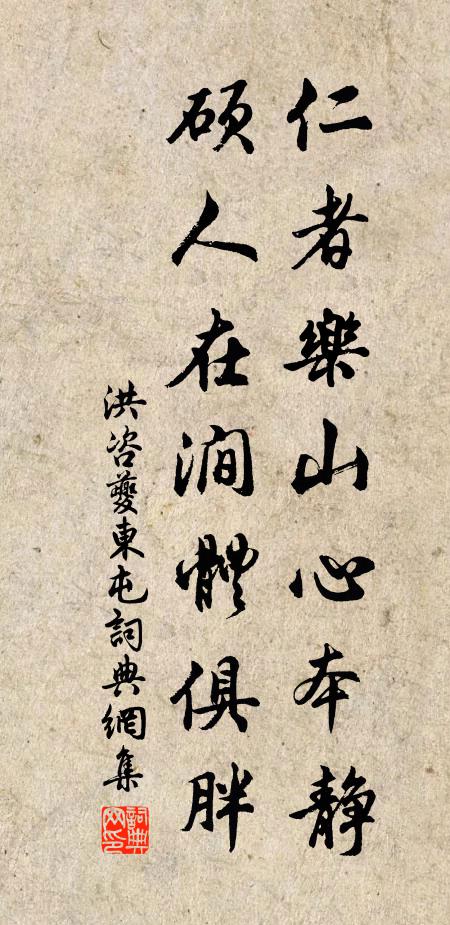 仁者樂山心本靜
碩人在澗體俱胖
洪咨夔東屯詞典網集
詞典網印